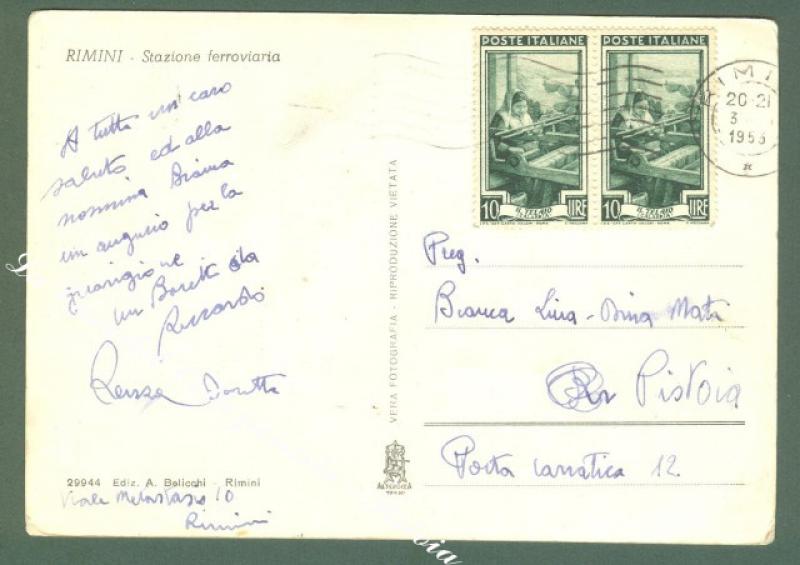 RIMINI - Stazione ferroviaria
A tutti un caro
saluto ed alla
nonnina Bianca
un augurio per la
guarigione
un
Riccardo
POSTE ITALIANE POSTE ITALIANE
10 IL TELAIO LIRE 10 IL TELAIO LIRE
RIMINI
20-21
3
1953
VERA FOTOGRAFIA - RIPRODUZIONE VIETATA
Preg.
Bianca Lina - Dina Mati
Pistoia
Porta Carratica 12
29944 Ediz. A. Belicchi - Rimini
Viale Metastasio 10
Rimini